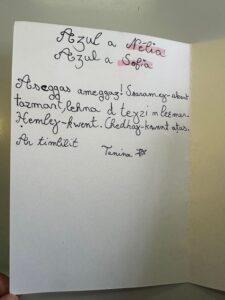 Azul a Nélia
Azul a Sofia
Aseggas ameggaz! Ssaramey-akent
tazmart, lehna d teγzi n leεmer.
Hemley-kwent. Chedhay-kwent aṭas.
Ar timlilit
Tanina